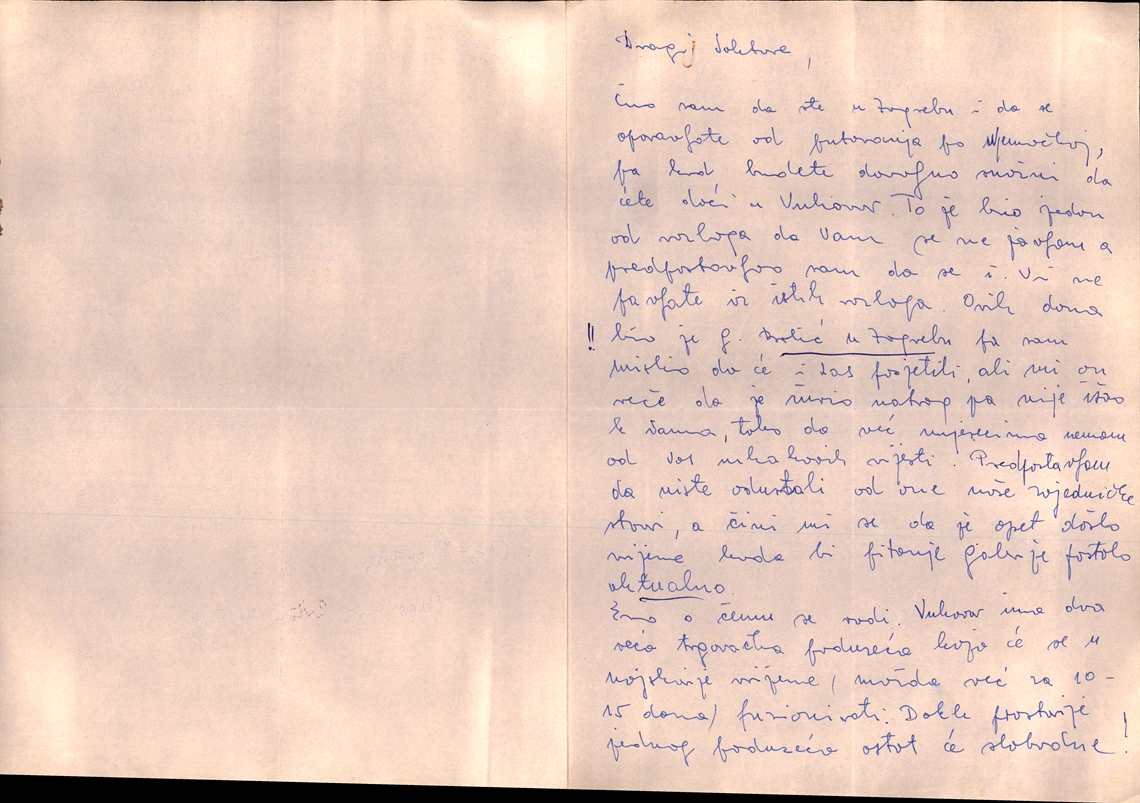 Dragi doktore,
Čuo sam da ste u Zagrebu i da se
oporavljate od putovanja po Njemačkoj,
pa kad budete dovoljno snažni da
ćete doći u Vukovar. To je bio jedan
od razloga da Vam se ne javljam a
predpostavljao sam da se i Vi ne
javljate iz istih razloga. Ovih dana
!! bio je g. u Zagrebu pa sam
mislio da će i Vas posjetiti, ali mi on
reče da je žurio natrag pa nije išao
k Vama, tako da već mjesecima nemam
od Vas nikakovih vijesti. Predpostavljam
da niste odustali od one naše zajedničke
stvari, a čini mi se da je opet došlo
vrijeme kada bi pitanje galerije postalo
aktualno.
Evo o čemu se radi. Vukovar ima dva
veća trgovačka poduzeća koja će se u
najskorije vrijeme (možda već za 10-
15 dana) fuzionirati. Dakle prostorije
jednog poduzeća ostat će slobodne!